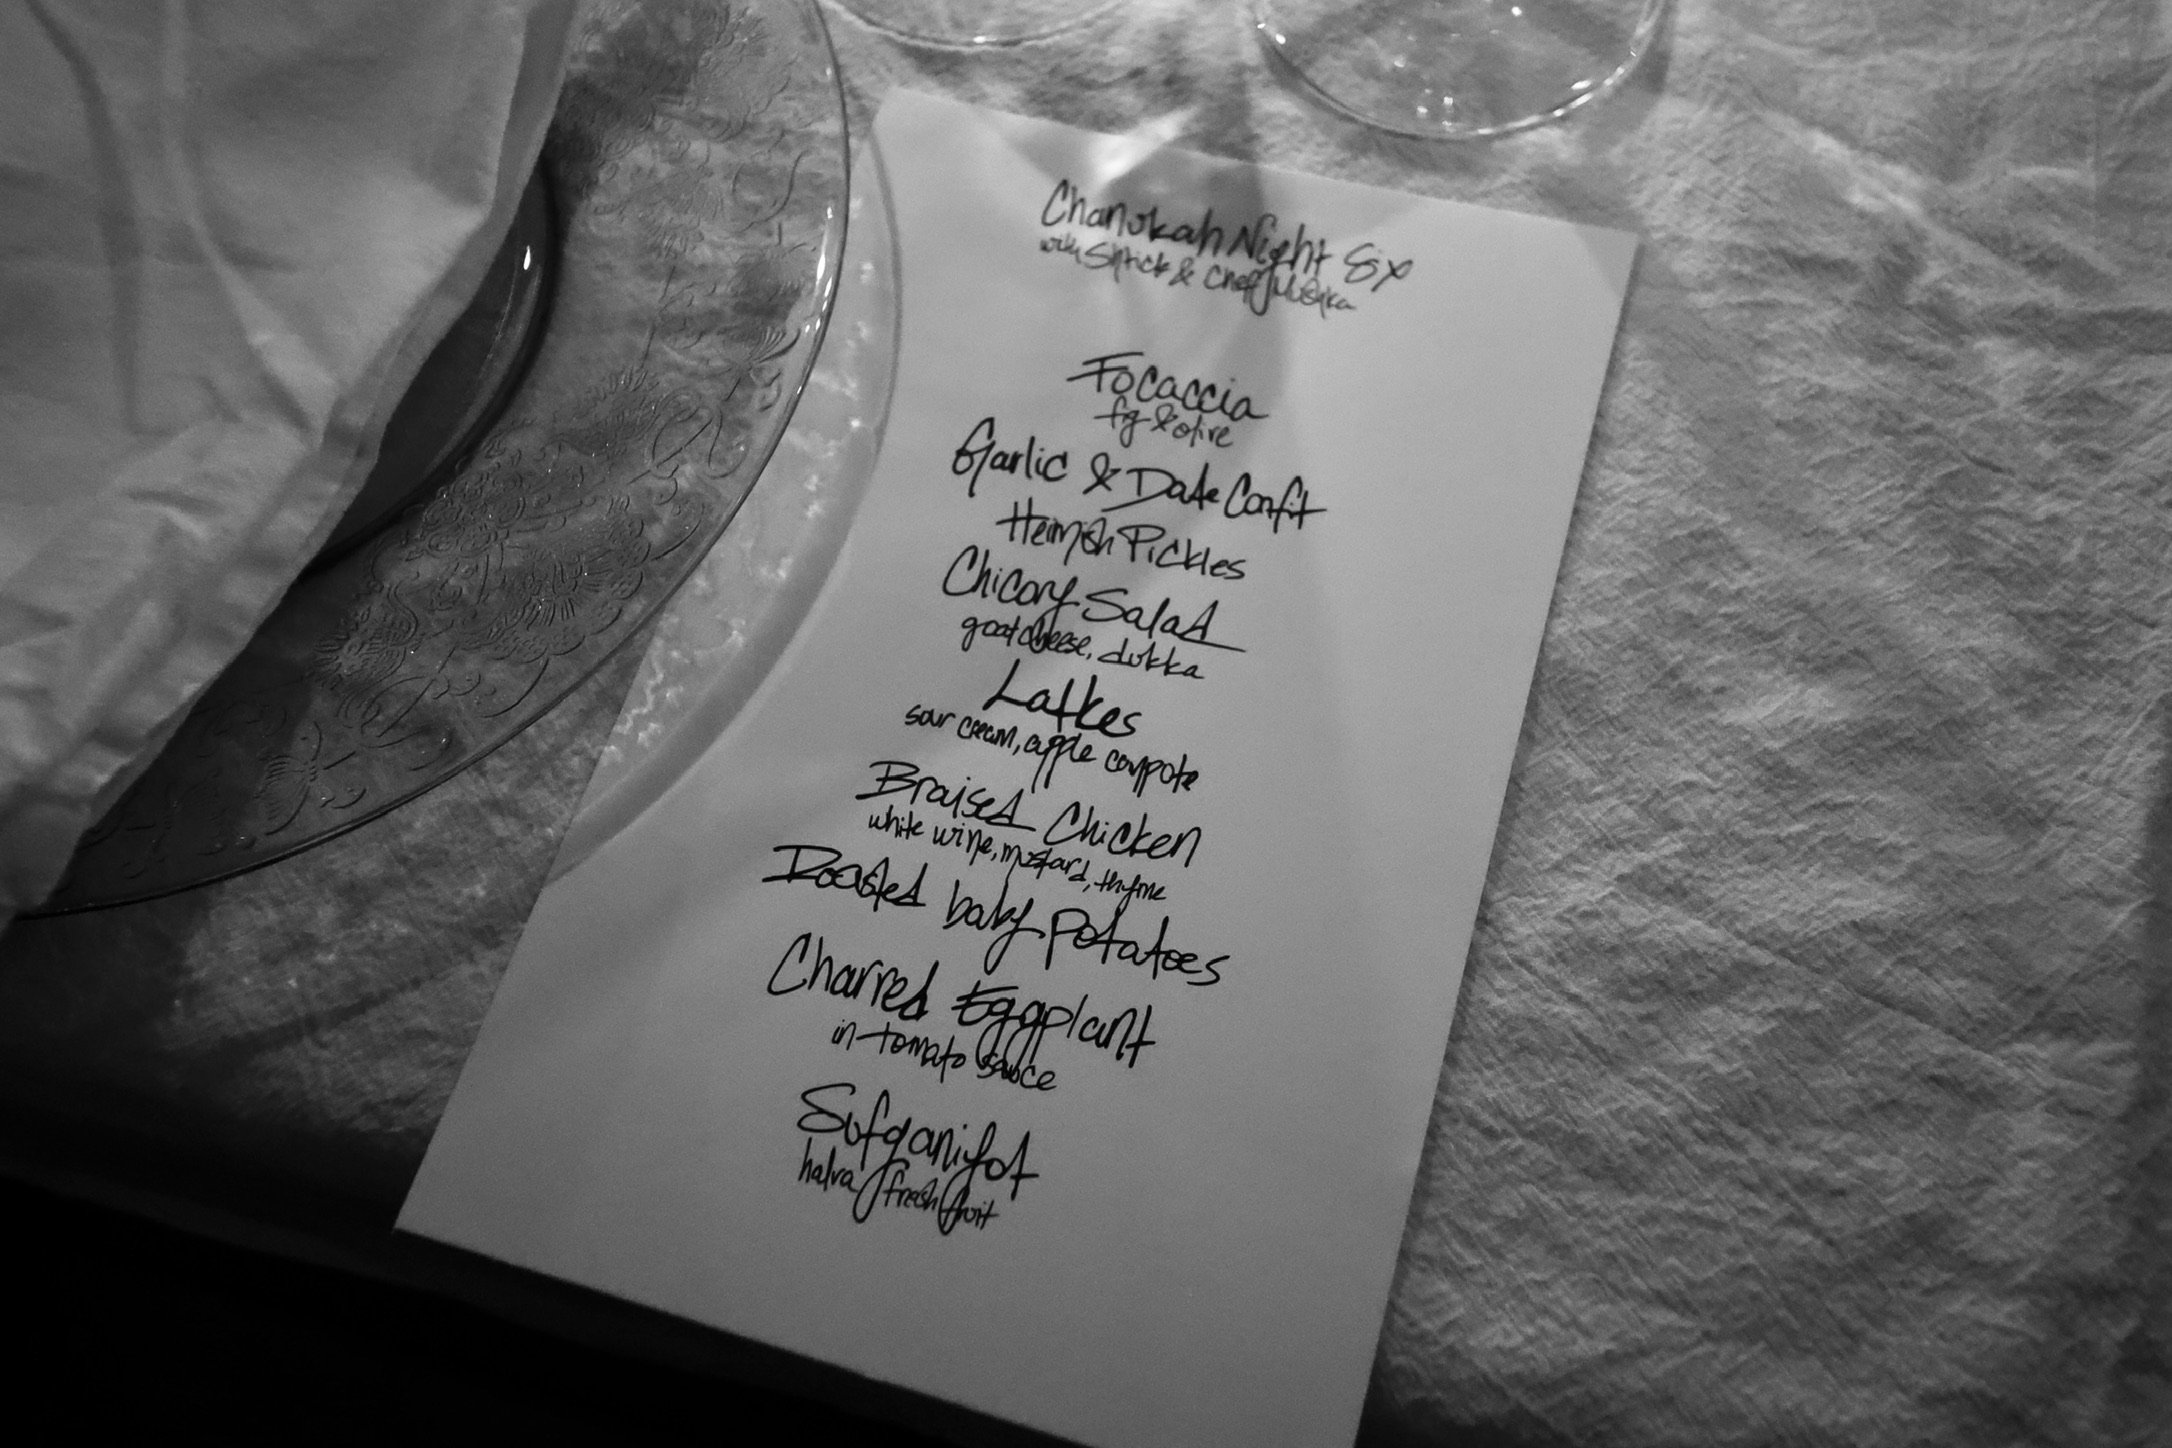 Chanukah Night Six
with Shtick & Chef
Focaccia
fig & olive
Garlic & Date Confit
Heimish Pickles
Chicory Salad
goat cheese, dukka
Latkes
sour cream, apple compote
Braised Chicken
white wine, mustard, thyme
Roasted baby potatoes
Charred Eggplant
in tomato sauce
Sufganiyot
halva, fresh fruit